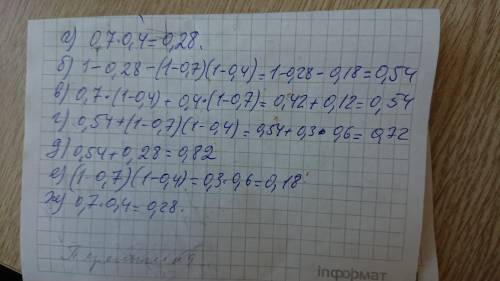 а) 0,7·0,4=0,28.
б) 1-0,28-(1-0,7)(1-0,4)=1-0,28-0,18=0,54
в) 0,7·(1-0,4)+0,4·(1-0,7)=0,42+0,12=0,54
г) 0,54+(1-0,7)(1-0,4)=0,54+0,3·0,6=0,72
д) 0,54+0,28=0,82
е) (1-0,7)(1-0,4)=0,3·0,6=0,18
ж) 0,7·0,4=0,28.
інформат